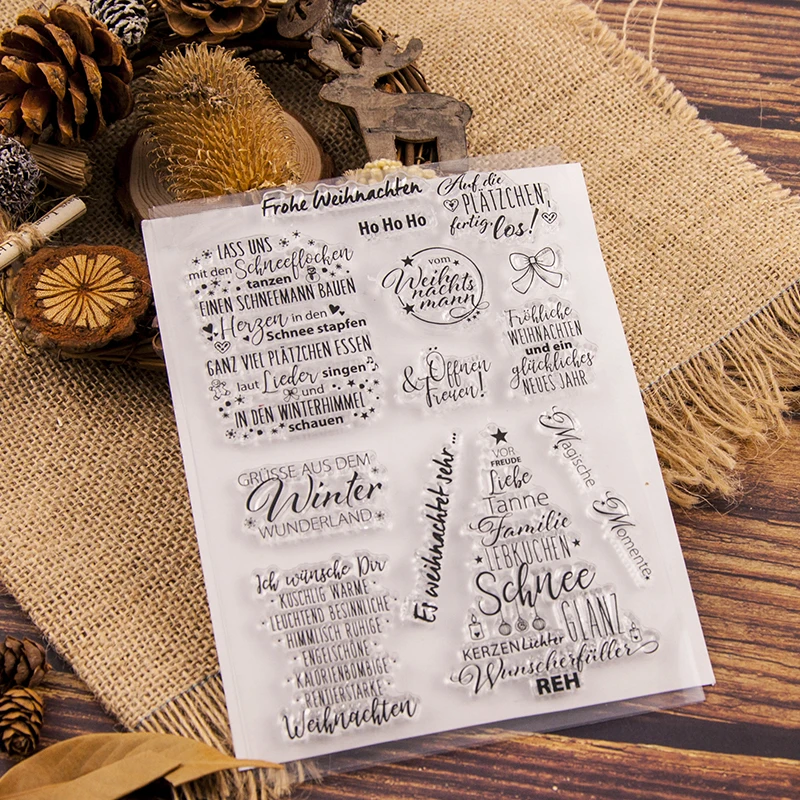 Frohe Weihnachten
Ho Ho Ho
Auf die
PLÄTZCHEN,
fertig los!
LASS UNS
mit den Schneeflocken
tanzen
EINEN SCHNEEMANN BAUEN
Herzen in den
Schnee stapfen
GANZ VIEL PLÄTZCHEN ESSEN
laut Lieder singen
und
IN DEN WINTERHIMMEL
schauen
vom
Weihnachts
mann
Fröhliche
WEIHNACHTEN
und ein
glückliches
NEUES JAHR
& Öffnen
freuen!
GRÜSSE AUS DEM
Winter
WUNDERLAND
Es weihnachtet sehr...
VOR
FREUDE
Liebe
Tanne
Familie
LEBKUCHEN
Schnee
GLANZ
KERZEN Lichter
Wunscherfüller
REH
Magische
Momente
Ich wünsche Dir
KUSCHLIG WARME
· LEUCHTEND BESINNLICHE ·
· HIMMLISCH RUHIGE ·
· ENGELSCHÖNE ·
· KALORIENBOMBIGE ·
· RENTIERSTARKE ·
Weihnachten